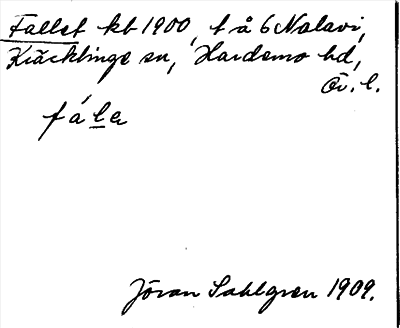 Fallet kb 1900, t å 6 Nalavi,
Kräcklinge sn, Hardemo hd,
Ör. l.
fále
Jöran Sahlgren 1909.